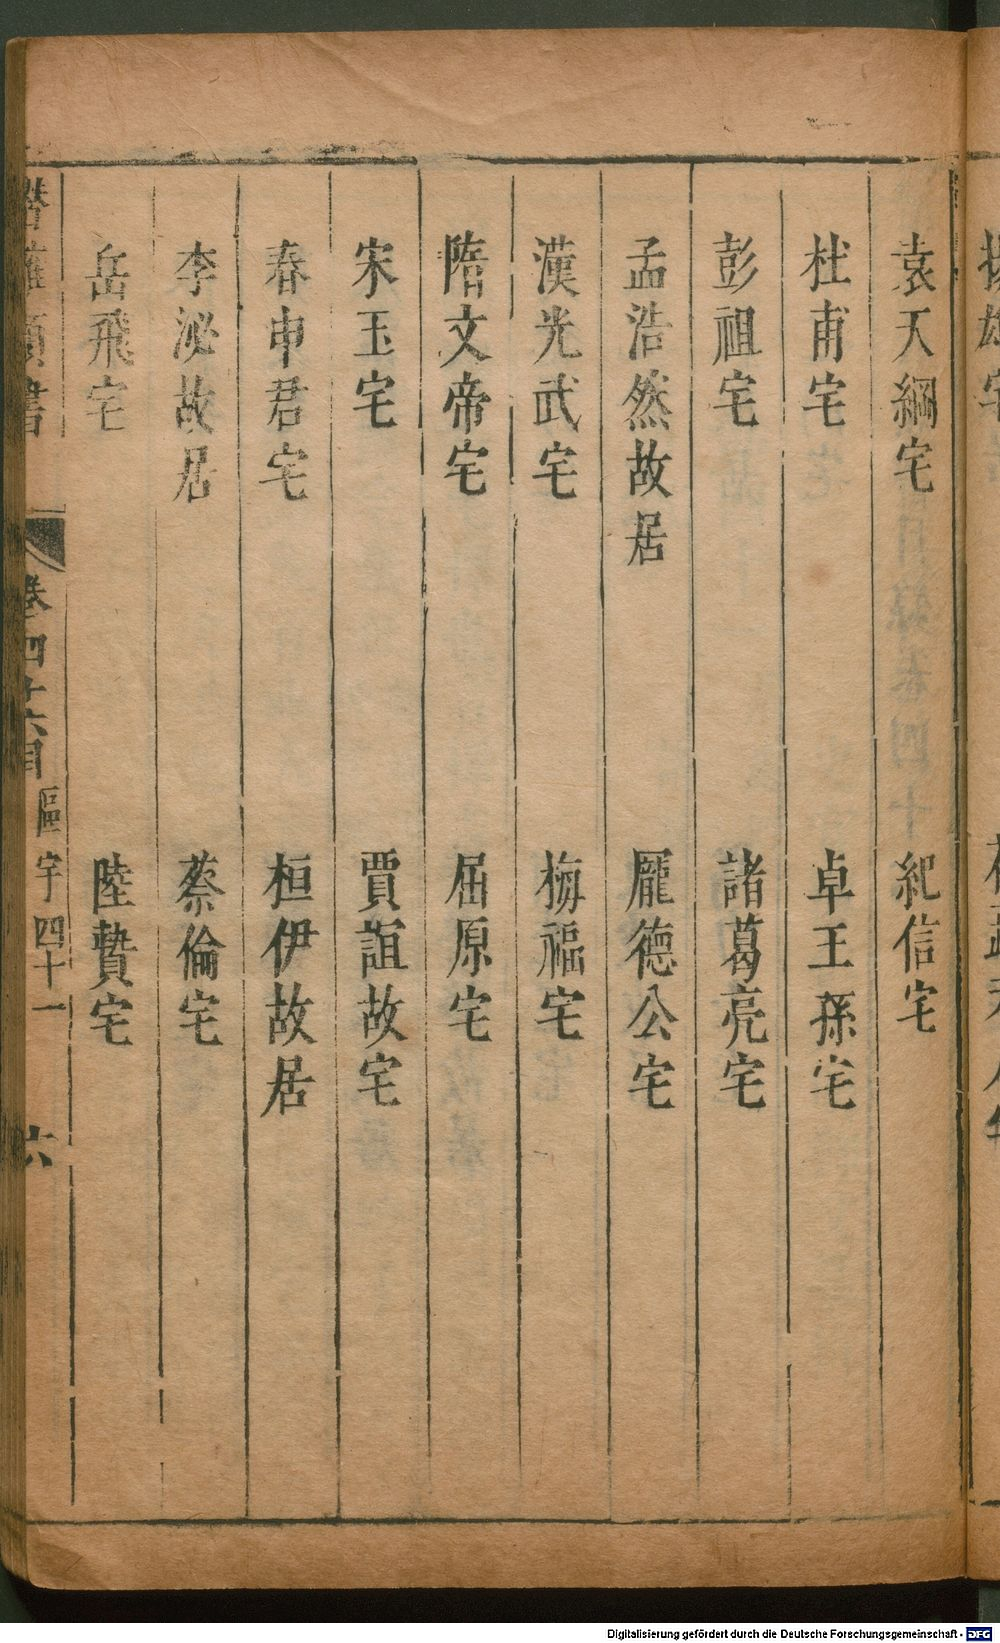 袁天綱宅　紀信宅
杜甫宅　卓王孫宅
彭祖宅　諸葛亮宅
孟浩然故居　龐德公宅
漢光武宅　梅福宅
隋文帝宅　屈原宅
宋玉宅　賈誼故宅
春申君宅　桓伊故居
李泌故居　蔡倫宅
岳飛宅　陸贄宅
潛確類書　卷四十六目　區宇四十一　六
Digitalisierung gefördert durch die Deutsche Forschungsgemeinschaft - DFG